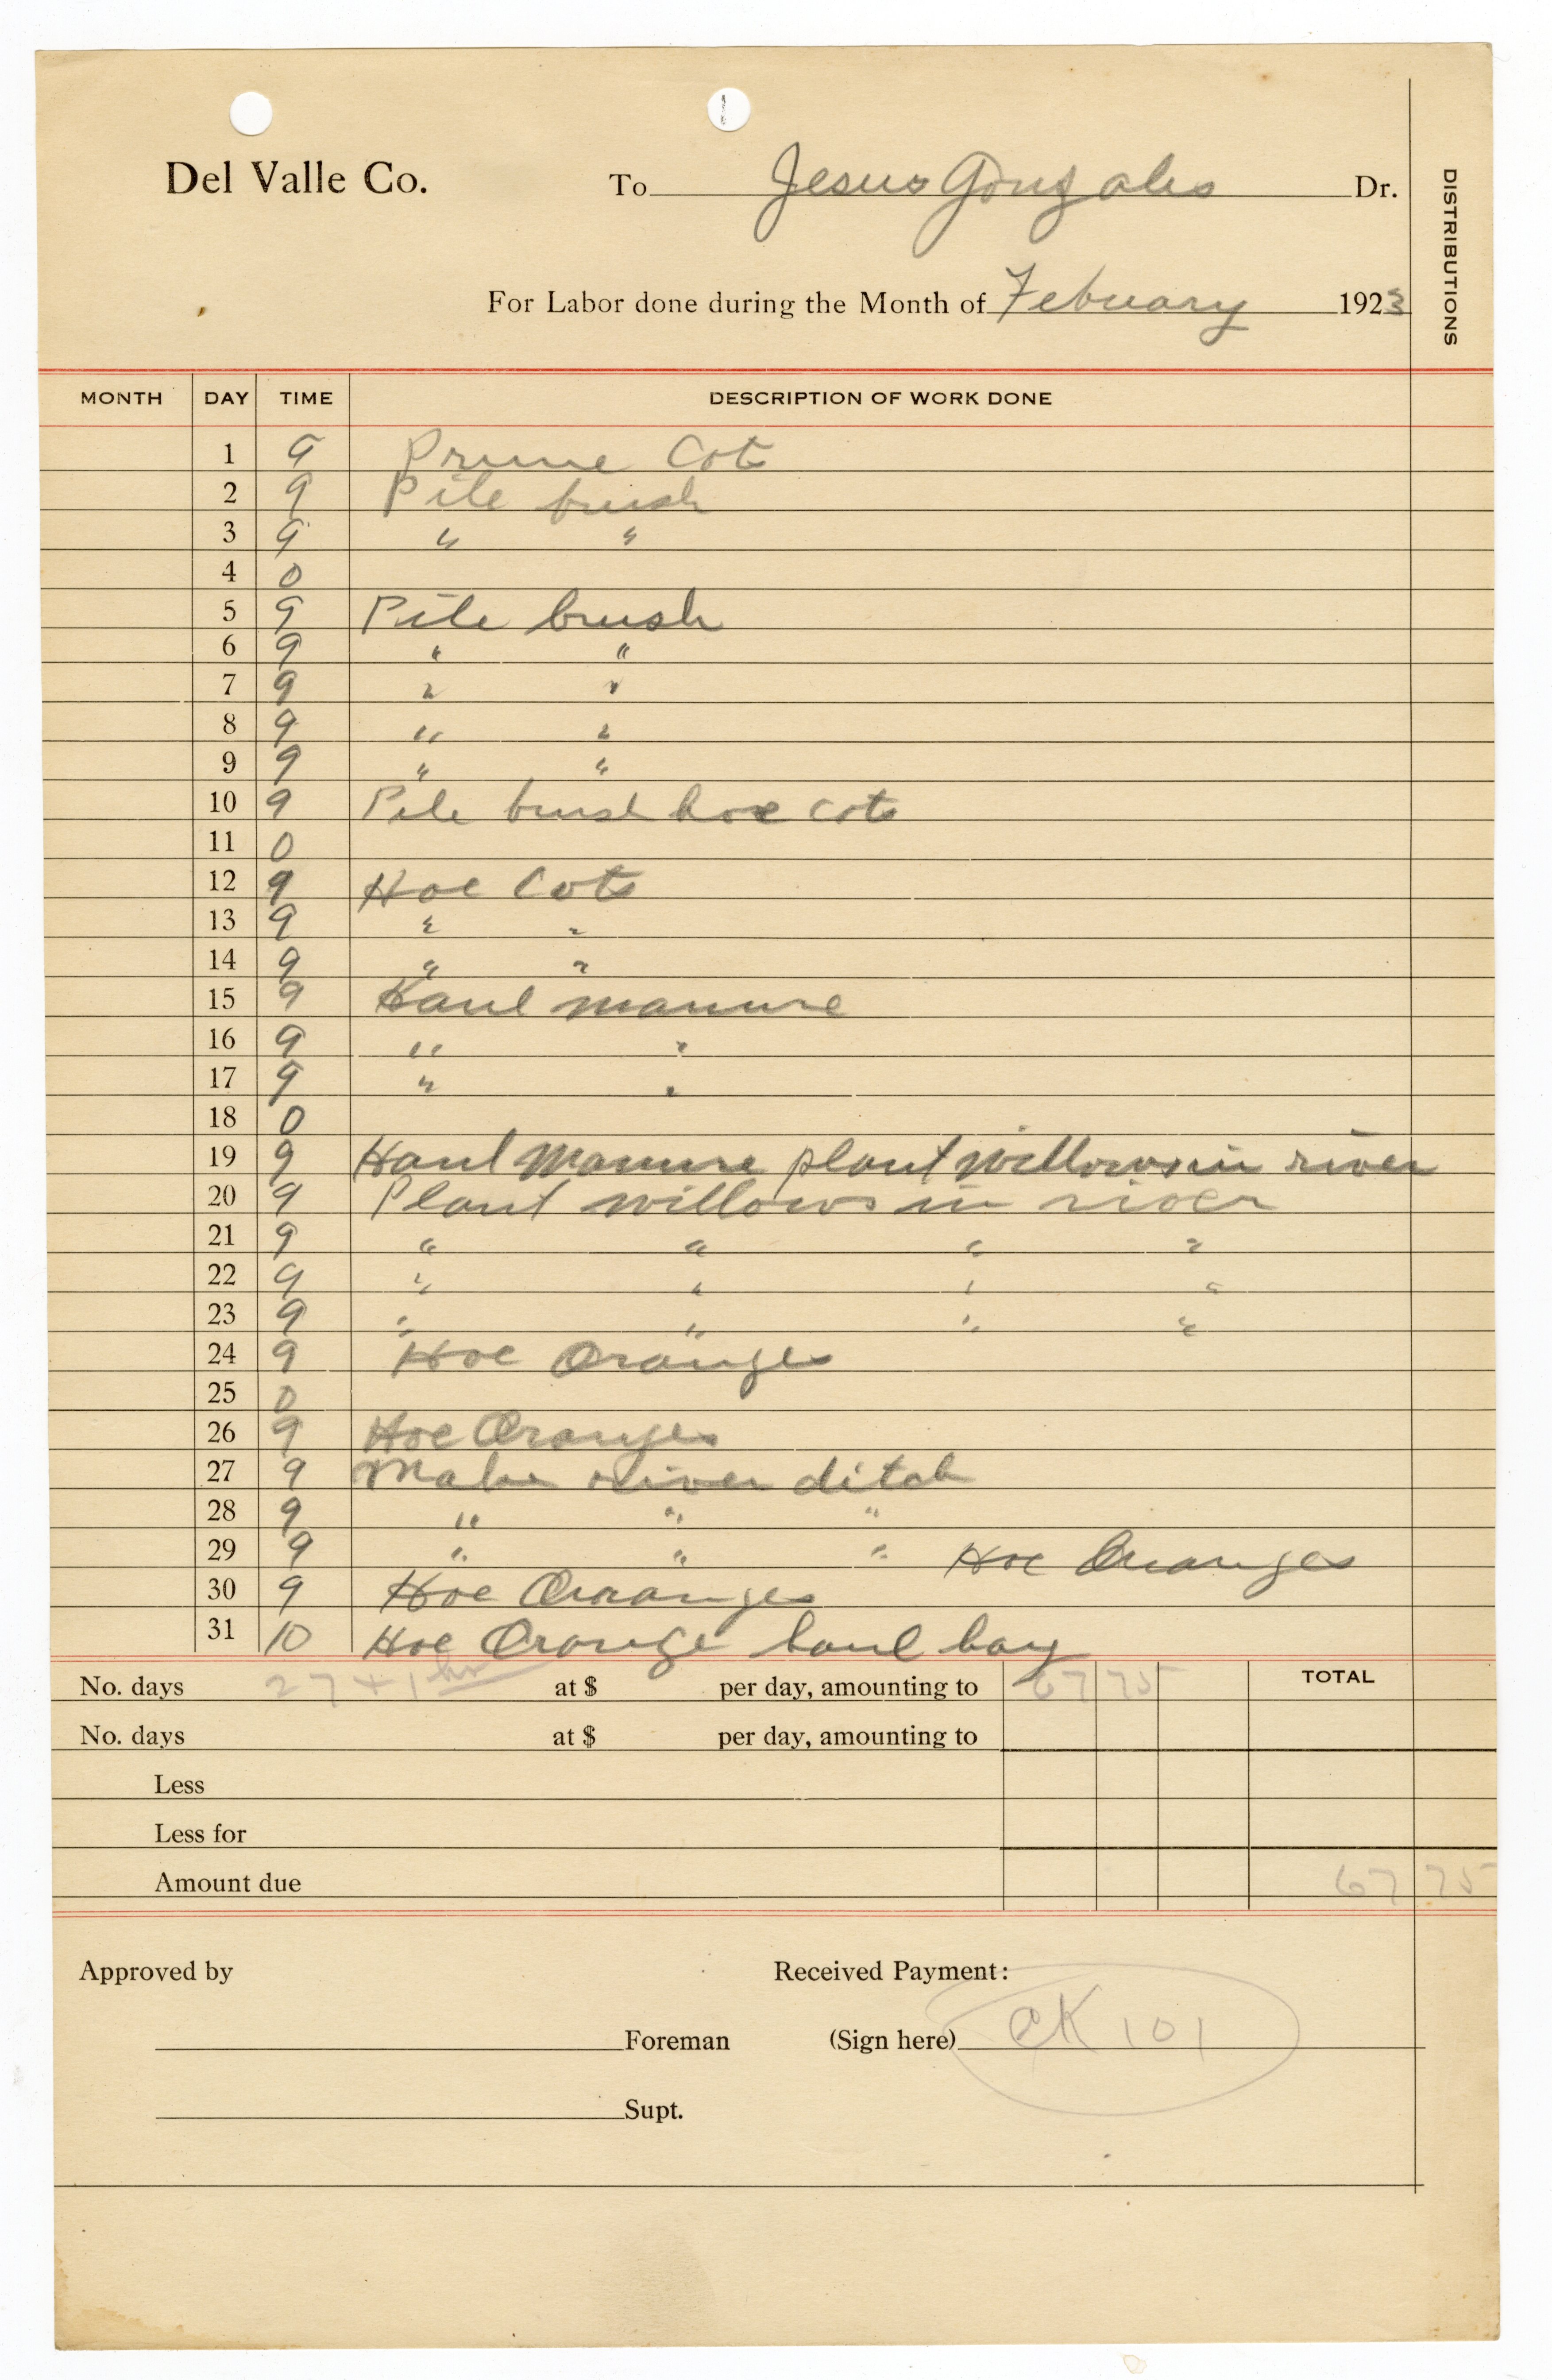 Del Valle Co. To Jesus Gonzales Dr.
DISTRIBUTIONS
For Labor done during the Month of Febuary 1923
MONTH DAY TIME DESCRIPTION OF WORK DONE
1 9 Prune Cots
2 9 Pile brush
3 9 " "
4 0
5 9 Pile brush
6 9 " "
7 9 " "
8 9 " "
9 9 " "
10 9 Pile brush hoe cots
11 0
12 9 Hoe Cots
13 9 " "
14 9 " "
15 9 Haul manure
16 9 " "
17 9 " "
18 0
19 9 Haul Manure plant willows in river
20 9 Plant willows in river
21 9 " " " "
22 9 " " " "
23 9 " " " "
24 9 Hoe Oranges
25 0
26 9 Hoe Oranges
27 9 Make river ditch
28 9 " " "
29 9 " " " Hoe Oranges
30 9 Hoe Oranges
31 10 Hoe Orange haul hay
No. days 27 + 1 hr at $ per day, amounting to 67 75 TOTAL
No. days at $ per day, amounting to
Less
Less for
Amount due 67 75
Approved by Received Payment:
Foreman (Sign here) CK 101
Supt.